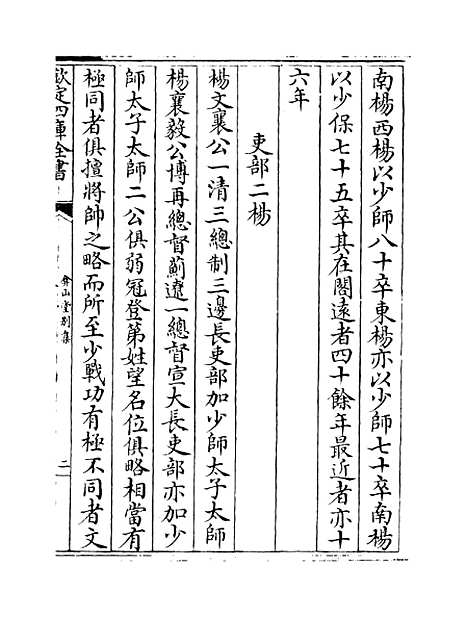 南楊西楊以少師八十卒東楊亦以少師七十卒南楊
以少保七十五卒其在閣遠者四十餘年最近者亦十
六年
吏部二楊
楊文襄公一清三總制三邊長吏部加少師太子太師
楊襄毅公博再總督薊遼一總督宣大長吏部亦加少
師太子太師二公俱弱冠登第姓望名位俱略相當有
極同者俱擅將帥之略而所至少戰功有極不同者文
欽定四庫全書
弇山堂別集
二